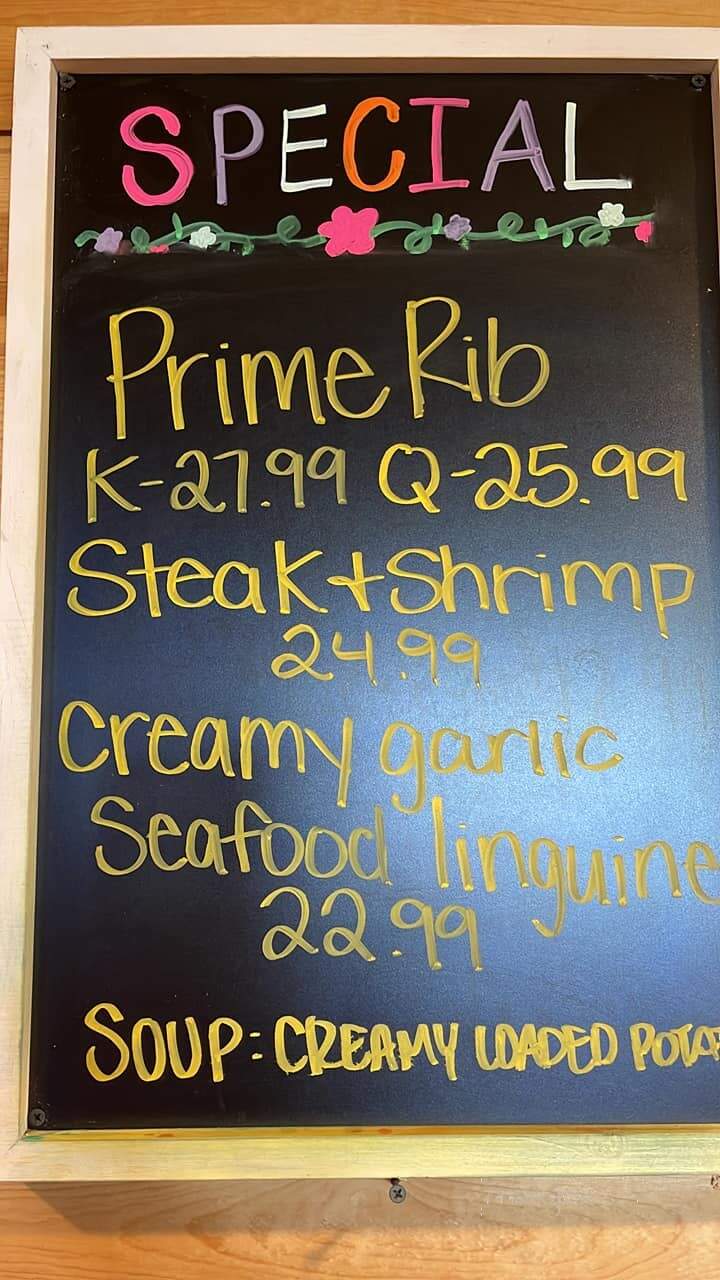 SPECIAL
Prime Rib
K-27.99 Q-25.99
Steak + Shrimp
24.99
Creamy garlic
Seafood linguine
22.99
SOUP: CREAMY LOADED